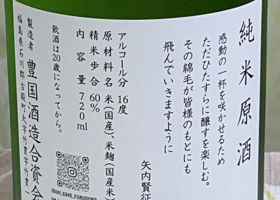 純米原酒
感動の一杯を咲かせるため
ただひたすらに醸すを楽しむ。
その綿毛が皆様のもとにも
飛んでいきますように
矢内賢征
アルコール分 16度
原材料名 米(国産)、米麹(国産米)
精米歩合 60%
内容量 720ml
飲酒は20歳になってから。
製造者 豊国酒造合資会
福島県石川郡古殿町大字竹貫字竹貫